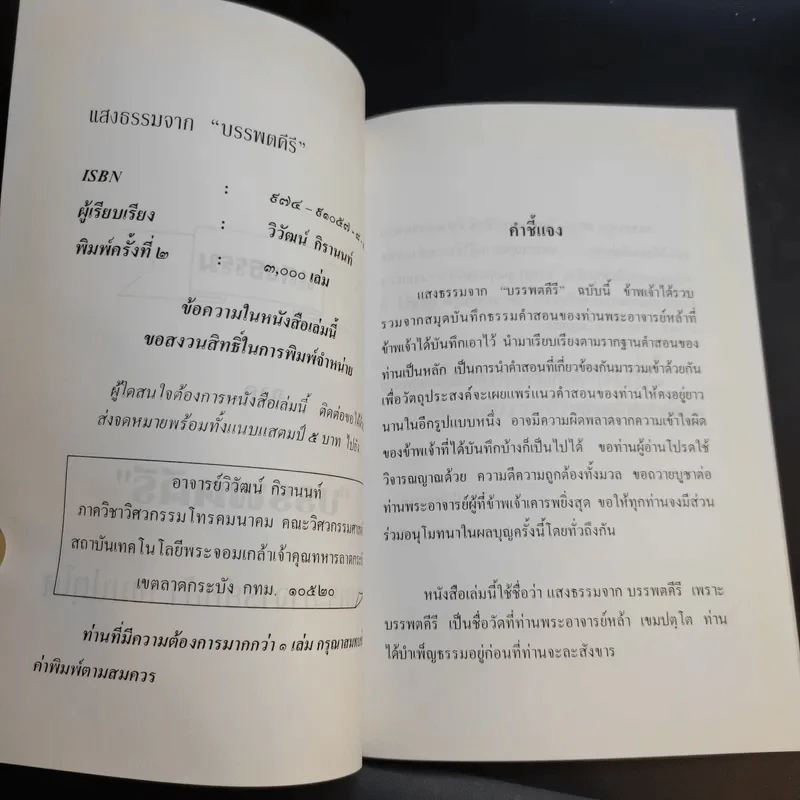 แสงธรรมจาก “บรรพตคีรี”
ISBN : ๙๗๔ – ๙๑๐๕๗ – ๙ –
ผู้เรียบเรียง : วิวัฒน์ กิรานนท์
พิมพ์ครั้งที่ ๒ : ๓,๐๐๐ เล่ม
ข้อความในหนังสือเล่มนี้
ขอสงวนสิทธิ์ในการพิมพ์จำหน่าย
ผู้ใดสนใจต้องการหนังสือเล่มนี้ ติดต่อขอได้
ส่งจดหมายพร้อมทั้งแนบแสตมป์ ๕ บาท ไปยัง
อาจารย์วิวัฒน์ กิรานนท์
ภาควิชาวิศวกรรมโทรคมนาคม คณะวิศวกรรมศาส
สถาบันเทคโนโลยีพระจอมเกล้าเจ้าคุณทหารลาดกระบั
เขตลาดกระบัง กทม. ๑๐๕๒๐
ท่านที่มีความต้องการมากกว่า ๑ เล่ม กรุณาสมทบ
ค่าพิมพ์ตามสมควร
คำชี้แจง
แสงธรรมจาก “บรรพตคีรี” ฉบับนี้ ข้าพเจ้าได้รวบ
รวมจากสมุดบันทึกธรรมคำสอนของท่านพระอาจารย์หล้าที่
ข้าพเจ้าได้บันทึกเอาไว้ นำมาเรียบเรียงตามรากฐานคำสอนของ
ท่านเป็นหลัก เป็นการนำคำสอนที่เกี่ยวข้องกันมารวมเข้าด้วยกัน
เพื่อวัตถุประสงค์จะเผยแพร่แนวคำสอนของท่านให้คงอยู่ยาว
นานในอีกรูปแบบหนึ่ง อาจมีความผิดพลาดจากความเข้าใจผิด
ของข้าพเจ้าที่ได้บันทึกบ้างก็เป็นไปได้ ขอท่านผู้อ่านโปรดใช้
วิจารณญาณด้วย ความดีความถูกต้องทั้งมวล ขอถวายบูชาต่อ
ท่านพระอาจารย์ผู้ที่ข้าพเจ้าเคารพยิ่งสุด ขอให้ทุกท่านจงมีส่วน
ร่วมอนุโมทนาในผลบุญครั้งนี้โดยทั่วถึงกัน
หนังสือเล่มนี้ใช้ชื่อว่า แสงธรรมจาก บรรพตคีรี เพราะ
บรรพตคีรี เป็นชื่อวัดที่ท่านพระอาจารย์หล้า เขมปตฺโต ท่าน
ได้บำเพ็ญธรรมอยู่ก่อนที่ท่านจะละสังขาร